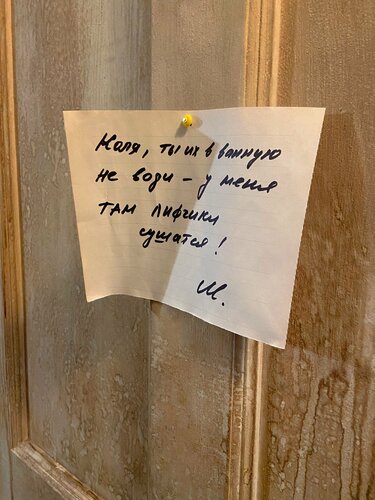 Коля, ты их в ванную
не води – у меня
там лифчики
сушатся!
М.